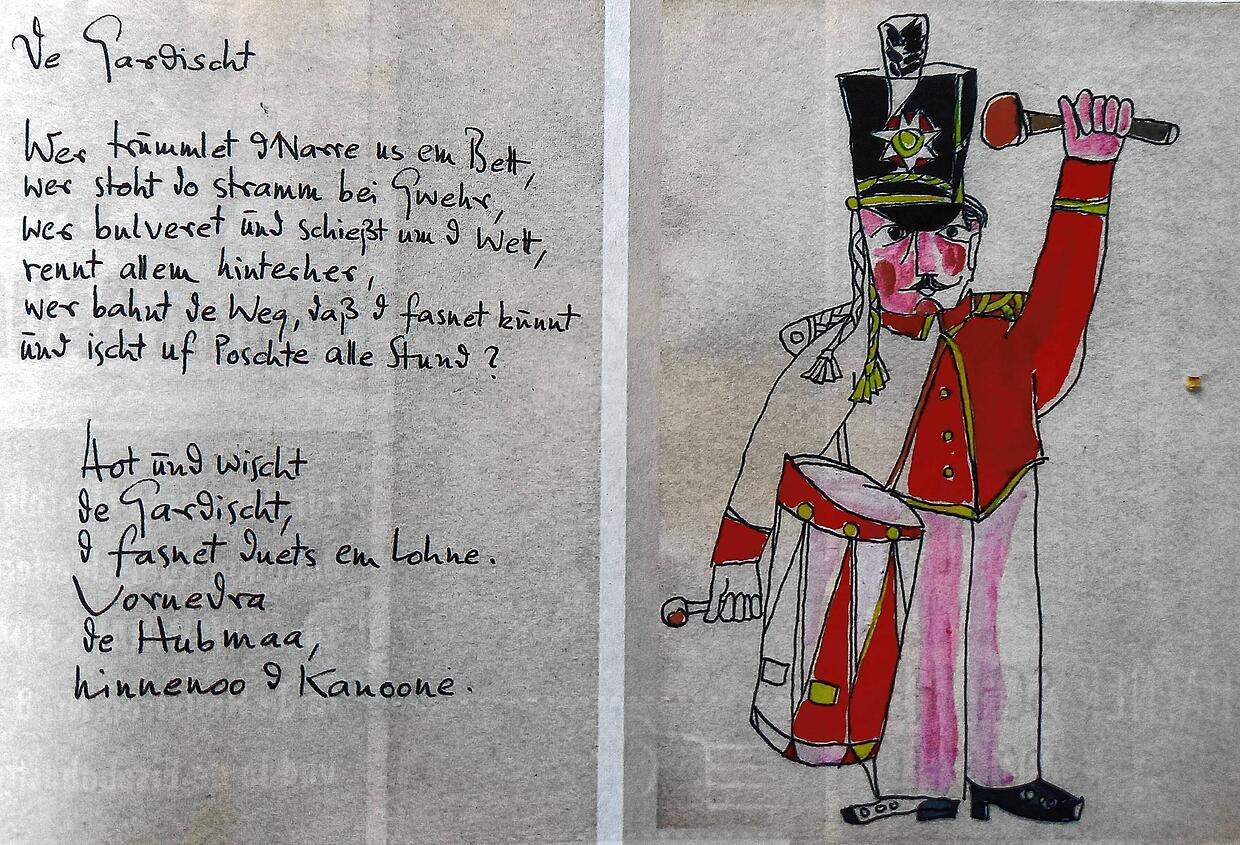 De Gardischt
Wer trummlet d'Narre us em Bett,
wer stoht do stramm bei Gwehr,
wer bulveret und schießt um d Wett,
rennt allem hinterher,
wer bahnt de Weg, daß d fasnet kunnt
und ischt uf Poschte alle Stund?
Hot und wischt
de Gardischt,
d fasnet duets em lohne.
Vornedra
de Hubmaa,
hinnenoo d Kanoone.